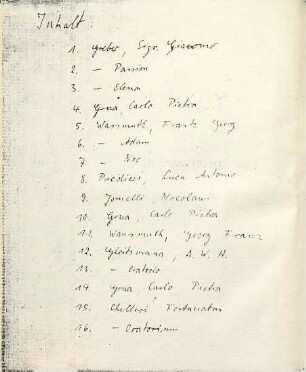 Inhalt:
1. Greber, Sigr. Giacomo
2. – Passion
3. – Elena
4. Grua, Carlo Pietro
5. Wassmuth, Frantz Georg
6. – Adam
7. – Noe
8. Predieri, Luca Antonio
9. Jomelli Nicolaus
10. Grua, Carlo Pietro
11. Wassmuth, Georg Franz
12. Gleitsmann, A. W. H.
13. – Oratorio
14 Grua Carlo Pietro
15. Chelleri Fortunatus
16. – Oratorium